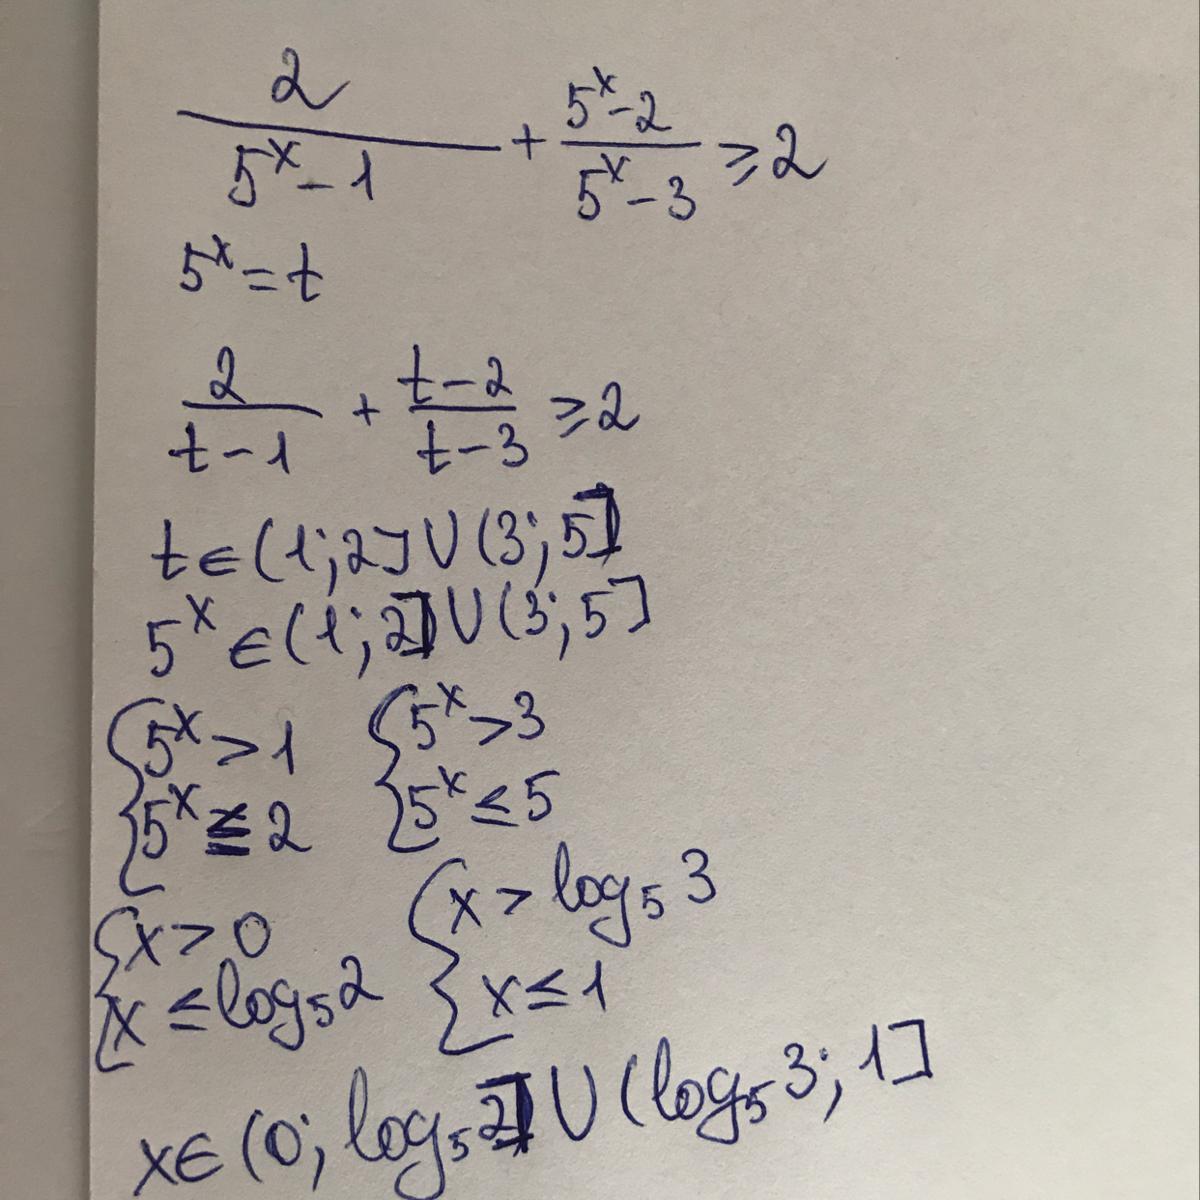 2/(5^x-1) + (5^x-2)/(5^x-3) ≥ 2
5^x = t
2/(t-1) + (t-2)/(t-3) ≥ 2
t ∈ (1; 2] ∪ (3; 5]
5^x ∈ (1; 2] ∪ (3; 5]
{5^x > 1 {5^x > 3
{5^x ≤ 2 {5^x ≤ 5
{x > 0 {x > log₅ 3
{x ≤ log₅ 2 {x ≤ 1
x ∈ (0; log₅ 2] ∪ (log₅ 3; 1]